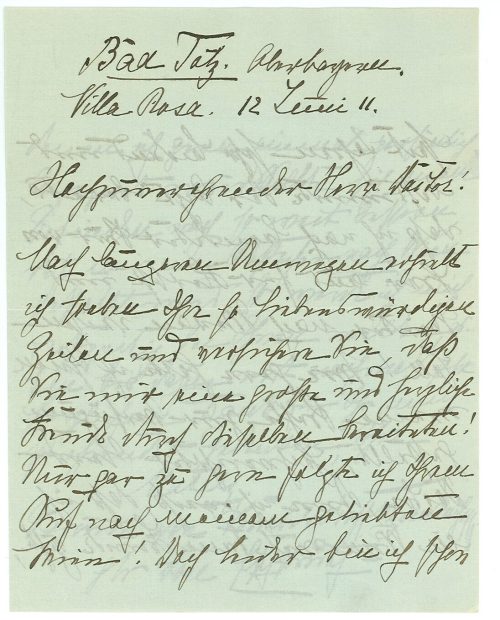 Bad Tölz. Oberbayern.
Villa Rosa. 12 Juni 11.
Hochzuverehrender Herr
Nach längerem erhielt
ich soeben Ihre so liebenswürdigen
Zeilen und versichere Sie, daß
Sie mir eine große und herzliche
Freude durch dieselben bereiteten!
Nur gar zu gern folgte ich Ihrem
Ruf nach meinem geliebten
Wien! Doch leider bin ich schon